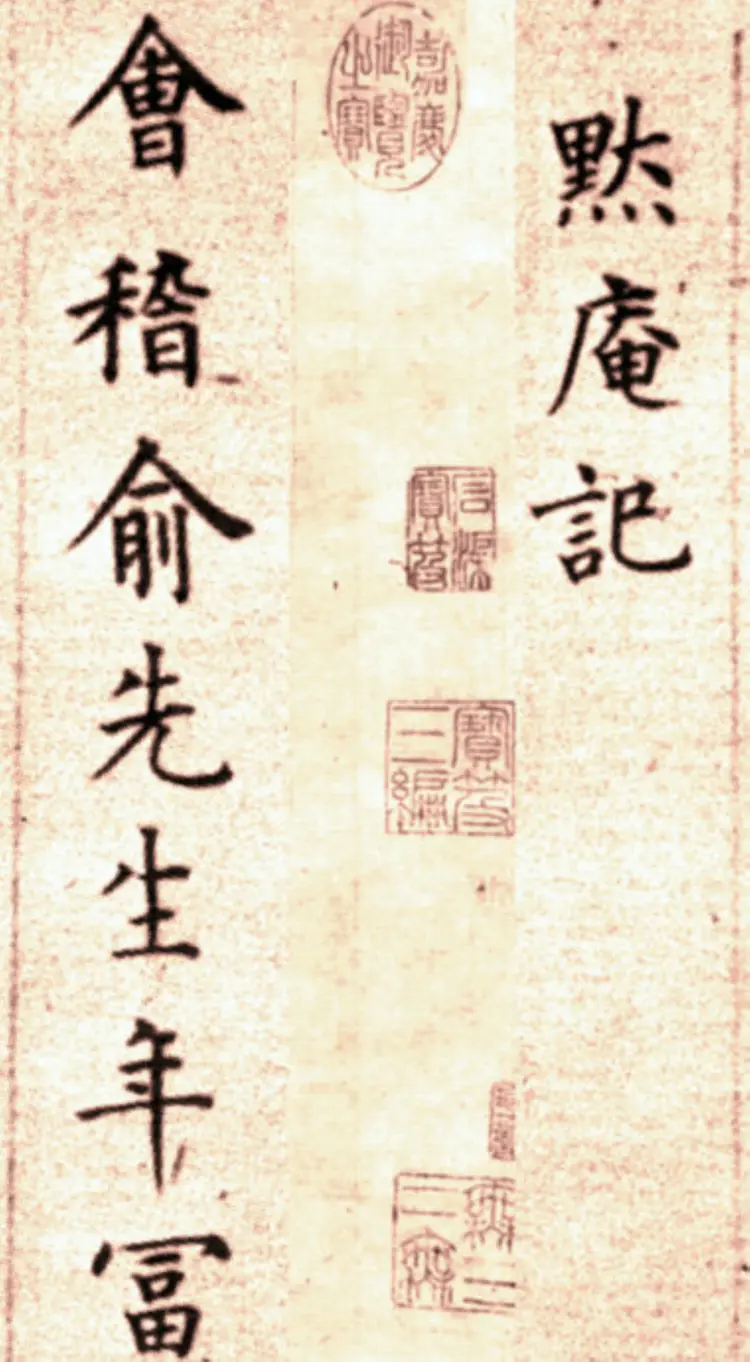 黙庵記
嘉慶御覽之寶
石渠寶笈
寶笈三編
會稽俞先生年冨